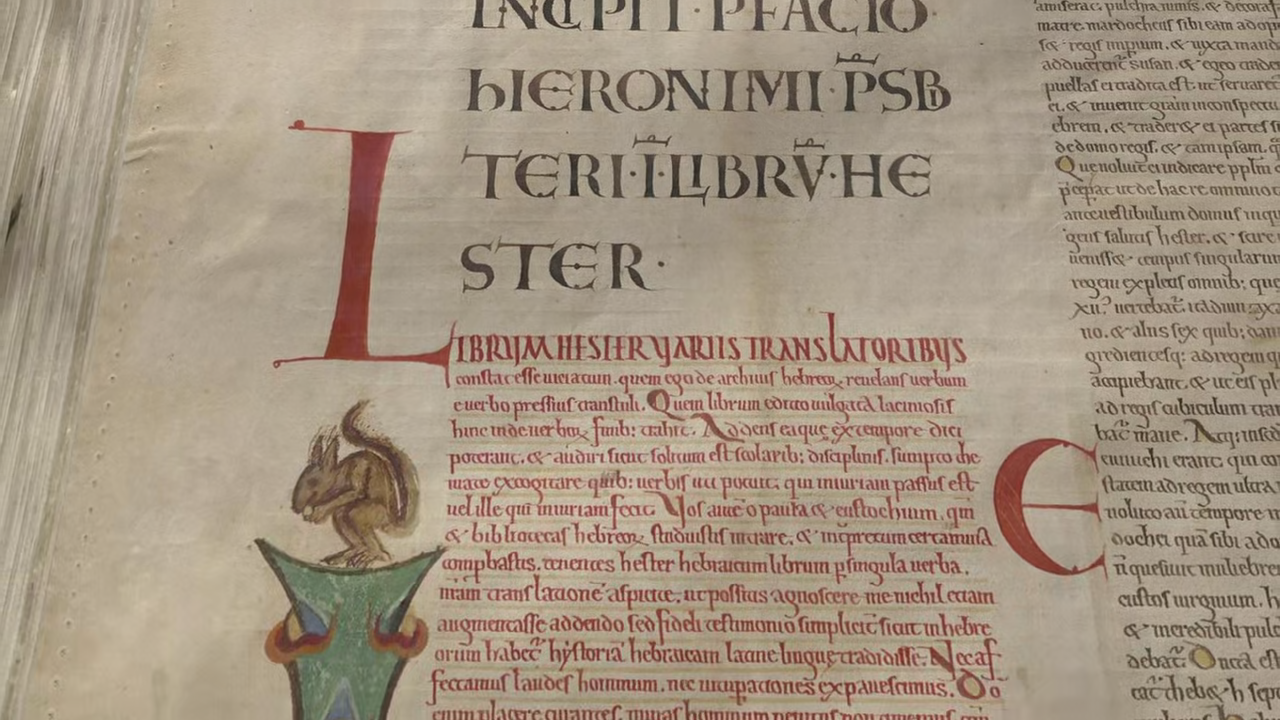 INCIPIT·PFACIO
hIERONIMI·PSB
TERI·I·LIBRV·HE
STER·
LIBRUM HESTER VARIIS TRANSLATORIBUS
constat esse uiciatum. quem ego de archiuis hebreoꝝ reuelans uerbum
e uerbo pressius transtuli. Quem librum editio uulgata laciniosis
hinc inde uerboꝝ funib; trahit. Addens ea que ex tempore dici
poterant. & audiri sicut solitum est scolarib; disciplinis. sumpto the
mate excogitare quib; uerbis uti potuit. qui iniuriam passus est
uel ille qui iniuriam fecit. Vos autē o paula & eustochium. qm̄
& bibliotecas hebreoꝝ studuistis intrare. & interpretum certamina
compbastis. tenentes hester hebraicum librum p singula uerba.
nram translationē aspicite. ut possitis agnoscere me nichil etiam
augmentasse addendo sed fideli testimonio simplicit sicut in hebre
orum habet hystoriā hebraicam latine lingue tradidisse. Nec af
fectamus laudes hominum. nec uituperationes expauescimus. Dō
matre. mardocheus sibi eam adop
& regis imperium. & iuxta manda
ei. & inuenit gratiam in conspectu
de domo regis. & tam ipsam
Que noluit ei indicare pplm
ante uestibulum domus in q
gens salutis hester. & scire
uenisset tempus singularum
regem expletis omnib; que
no. & aliis sex quib; dam
gredientesq; ad regem q
accipiebant. & ut eis pl
ad regis cubiculum tran
E
eunuchi erant. qui con
statem ad regem ultra
uoluto autē tempore
dochei quā sibi ado
n̄ quesiuit muliebre
custos uirginum. h
& incredibili pulc
debat. Ducta est